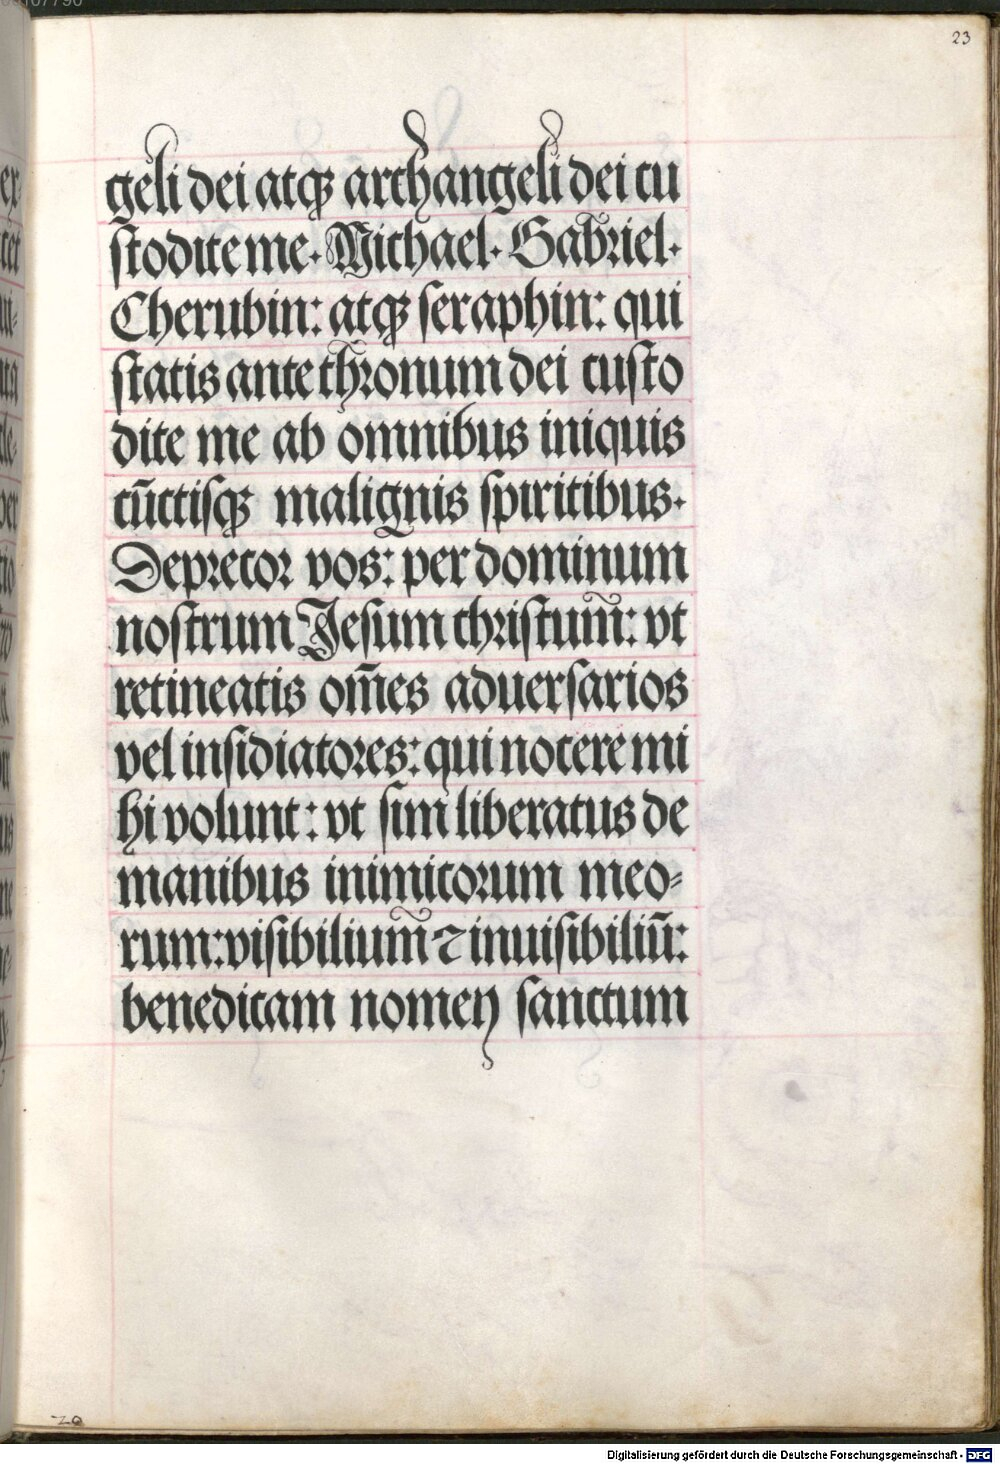 23
geli dei atqꝫ archangeli dei cu
ſtodite me. Michael. Gabriel.
Cherubin: atqꝫ ſeraphin: qui
ſtatis ante thronum dei cuſto
dite me ab omnibus iniquis
cūctiſqꝫ malignis ſpiritibus.
Deprecor vos: per dominum
noſtrum Jeſum chriſtum̄: vt
retineatis om̄es aduerſarios
vel inſidiatores: qui nocere mi
hi volunt: vt ſim liberatus de
manibus inimicorum meo⸗
rum: viſibilium̄ ⁊ inuiſibiliū:
benedicam nomen ſanctum
20
Digitalisierung gefördert durch die Deutsche Forschungsgemeinschaft - DFG